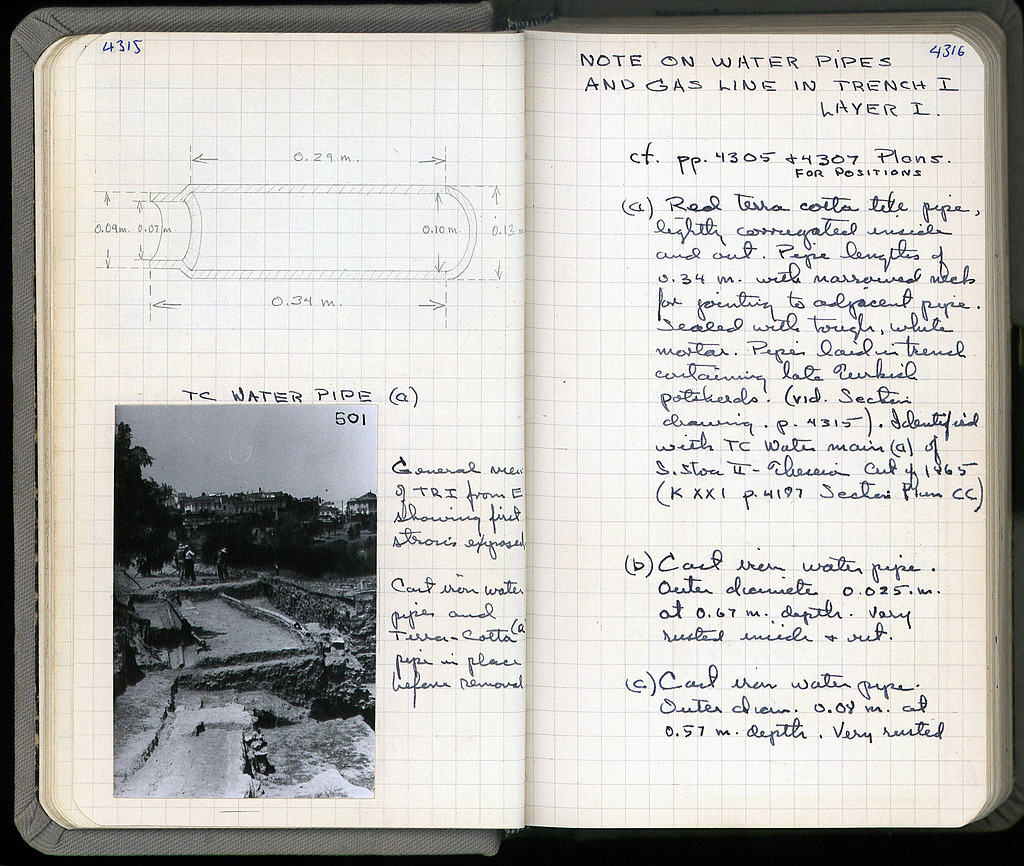 4315
0.29 m.
0.09m. 0.07 m. 0.10 m. 0.13
0.34 m.
TC WATER PIPE (a)
501
General view
of TR I from E
showing first
strosis exposed
Cast iron water
pipes and
Terra-Cotta (a
pipe in place
before removal
4316
NOTE ON WATER PIPES
AND GAS LINE IN TRENCH I
LAYER I.
cf. pp. 4305 + 4307 Plans.
FOR POSITIONS
(a) Red terra cotta tile pipe,
lightly corrugated inside
and out. Pipe lengths of
0.34 m. with narrowed neck
for jointing to adjacent pipe.
Sealed with tough, white
mortar. Pipes laid in trench
containing late Turkish
potsherds. (vid. Section
drawing. p. 4315). Identified
with TC Water main (a) of
S. Stoa II - Theseion Cut of 1965
(K XXI p. 4197 Section Plan CC)
(b) Cast iron water pipe.
Outer diameter 0.025 m.
at 0.67 m. depth. Very
rusted inside + out.
(c) Cast iron water pipe.
Outer diam. 0.08 m. at
0.57 m. depth. Very rusted